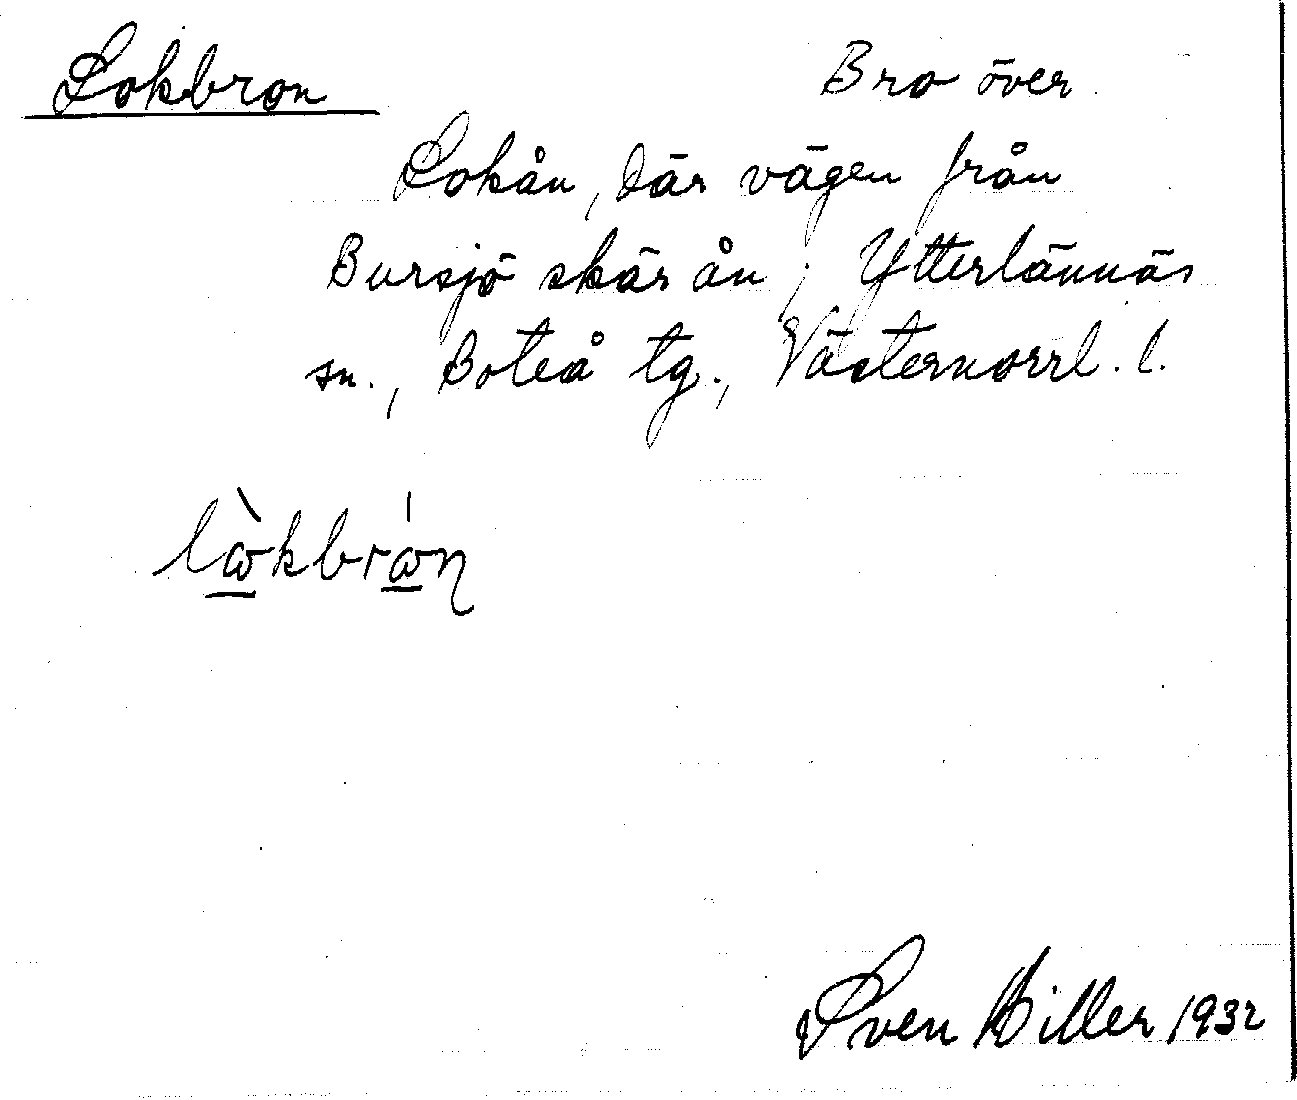 Lokbron
Bro över
Lokån, där vägen från
Bursjö skär ån; Ytterlännäs
sn., Boteå tg., Västernorrl. l.
Sven Hiller 1932